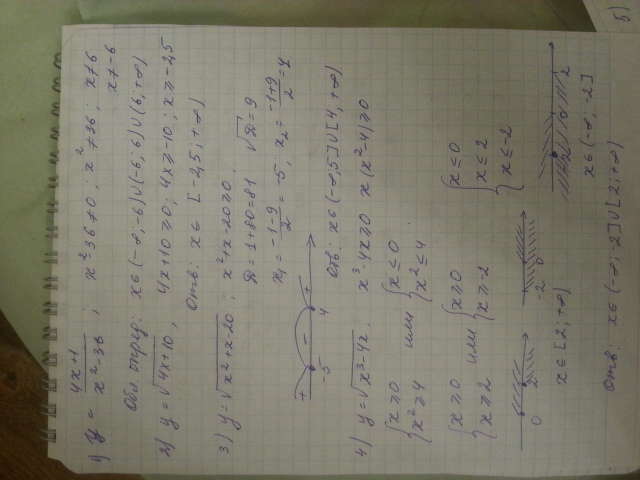 1) y = (4x+1)/(x²-36) ; x²-36≠0 ; x²≠36 ; x≠6
x≠-6
Обл. опред: x∈(-∞;-6)∪(-6;6)∪(6;+∞)
2) y = √(4x+10) ; 4x+10≥0 ; 4x≥-10 ; x≥-2,5
Отв: x∈[-2,5;+∞)
3) y = √(x²+x-20) ; x²+x-20≥0
D=1+80=81 √D=9
x₁ = (-1-9)/2 = -5 , x₂ = (-1+9)/2 = 4
+ - +
-5 4
Отв: x∈(-∞,5]∪[4,+∞)
4) y = √(x³-4x) , x³-4x≥0 x(x²-4)≥0
{x≥0 или {x≤0
{x²≥4 {x²≤4
{x≥0 или {x≥0 {x≤0
{x≥2 {x≥-2 {x≤2
{x≤-2
0 2 -2 0 -2 0 2
x∈[2;+∞) x∈(-∞,-2]
Отв: x∈(-∞;-2]∪[2;+∞)
5)